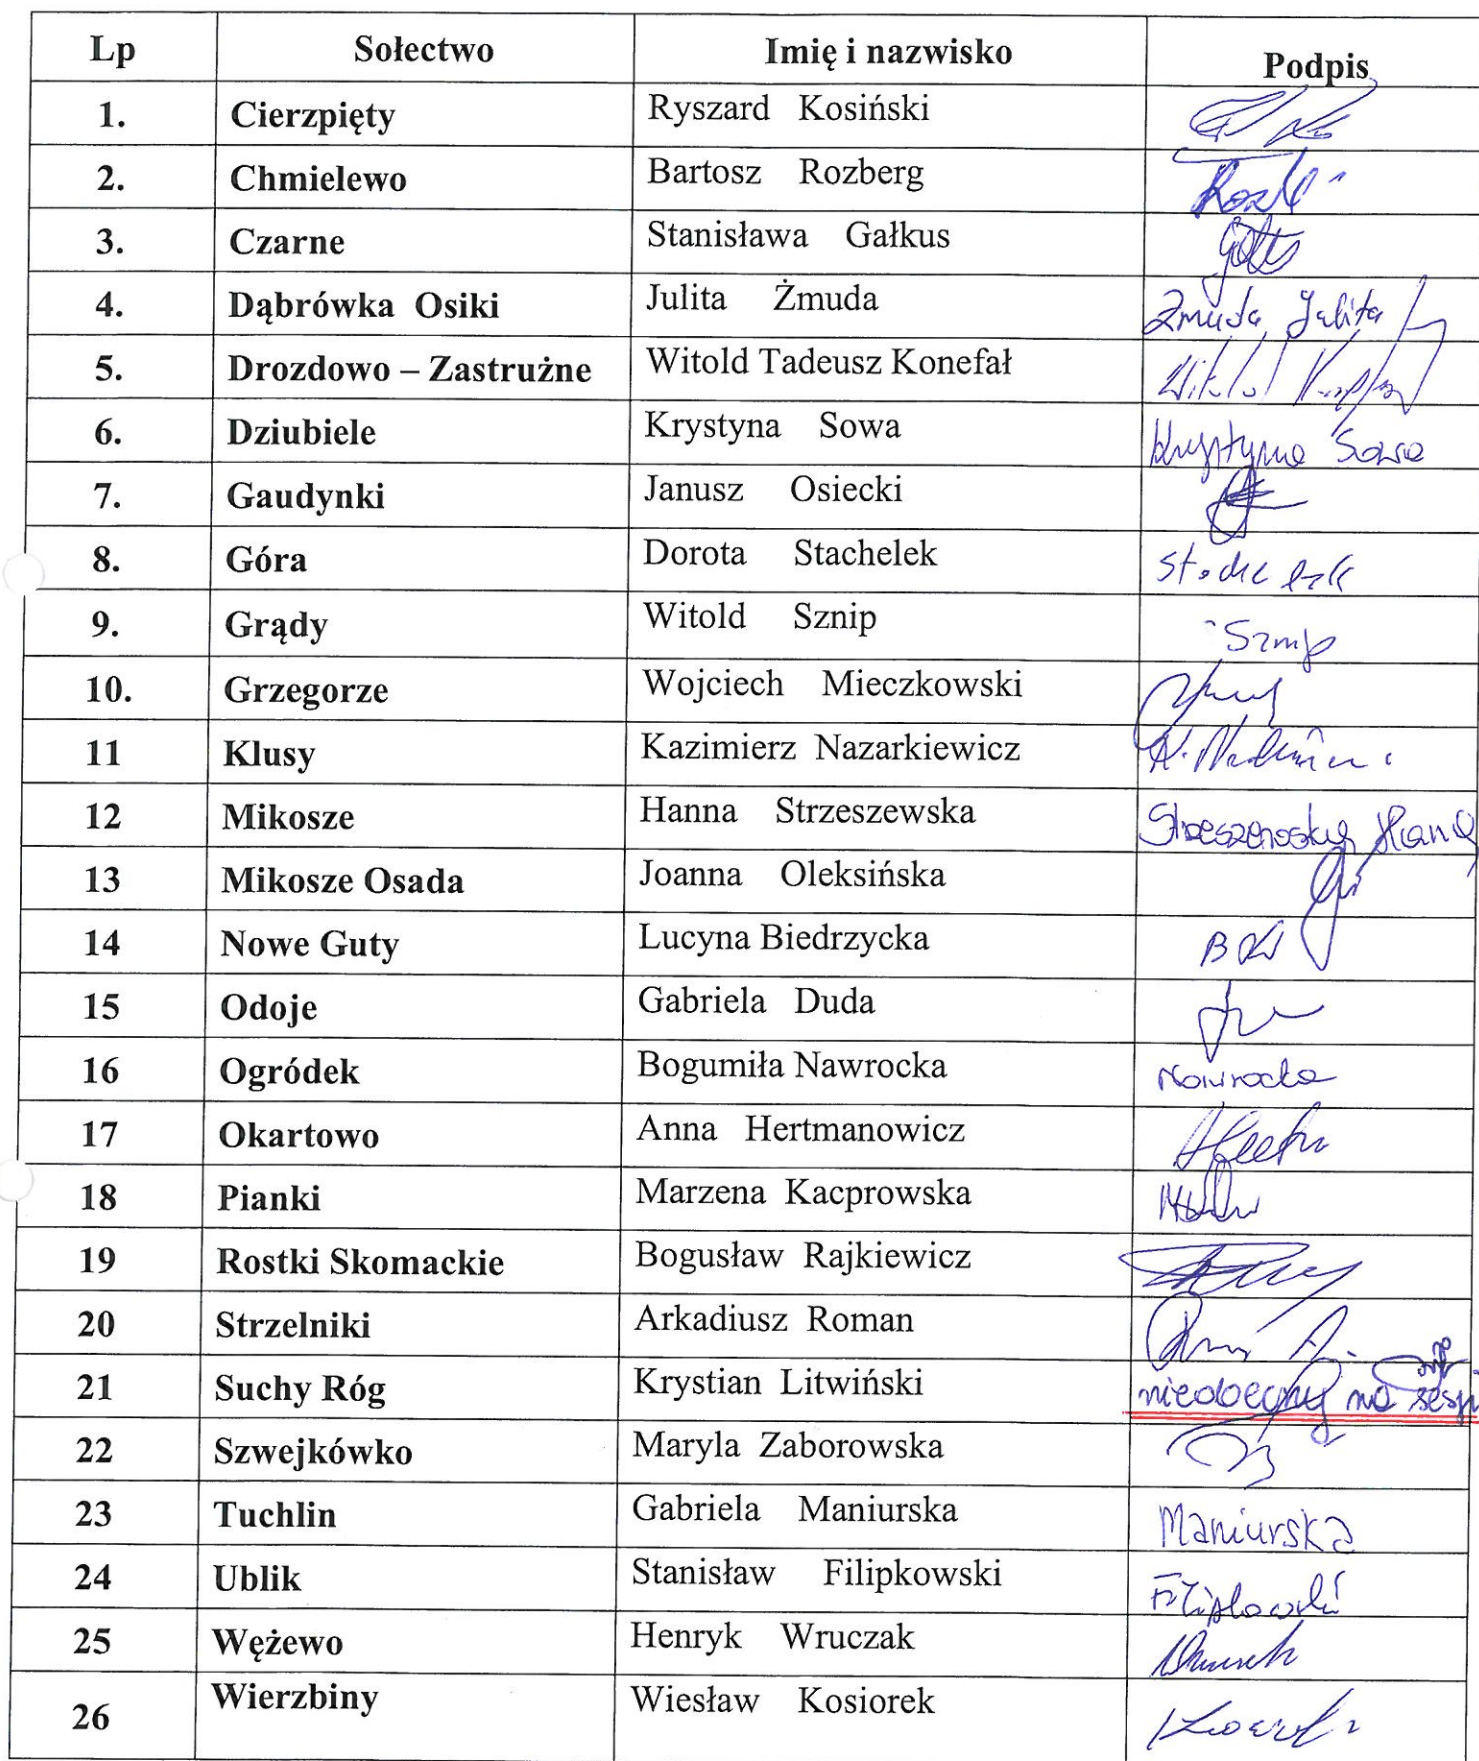 Lp Sołectwo Imię i nazwisko Podpis
1. Cierzpięty Ryszard Kosiński
2. Chmielewo Bartosz Rozberg
3. Czarne Stanisława Gałkus
4. Dąbrówka Osiki Julita Żmuda Żmuda Julita
5. Drozdowo – Zastrużne Witold Tadeusz Konefał Witold
6. Dziubiele Krystyna Sowa Krystyna Sowa
7. Gaudynki Janusz Osiecki
8. Góra Dorota Stachelek Stachelek
9. Grądy Witold Sznip Sznip
10. Grzegorze Wojciech Mieczkowski
11 Klusy Kazimierz Nazarkiewicz
12 Mikosze Hanna Strzeszewska
13 Mikosze Osada Joanna Oleksińska
14 Nowe Guty Lucyna Biedrzycka
15 Odoje Gabriela Duda
16 Ogródek Bogumiła Nawrocka Nawrocka
17 Okartowo Anna Hertmanowicz
18 Pianki Marzena Kacprowska
19 Rostki Skomackie Bogusław Rajkiewicz
20 Strzelniki Arkadiusz Roman
21 Suchy Róg Krystian Litwiński nieobecny na sesji
22 Szwejkówko Maryla Zaborowska
23 Tuchlin Gabriela Maniurska Maniurska
24 Ublik Stanisław Filipkowski Filipkowski
25 Wężewo Henryk Wruczak
26 Wierzbiny Wiesław Kosiorek